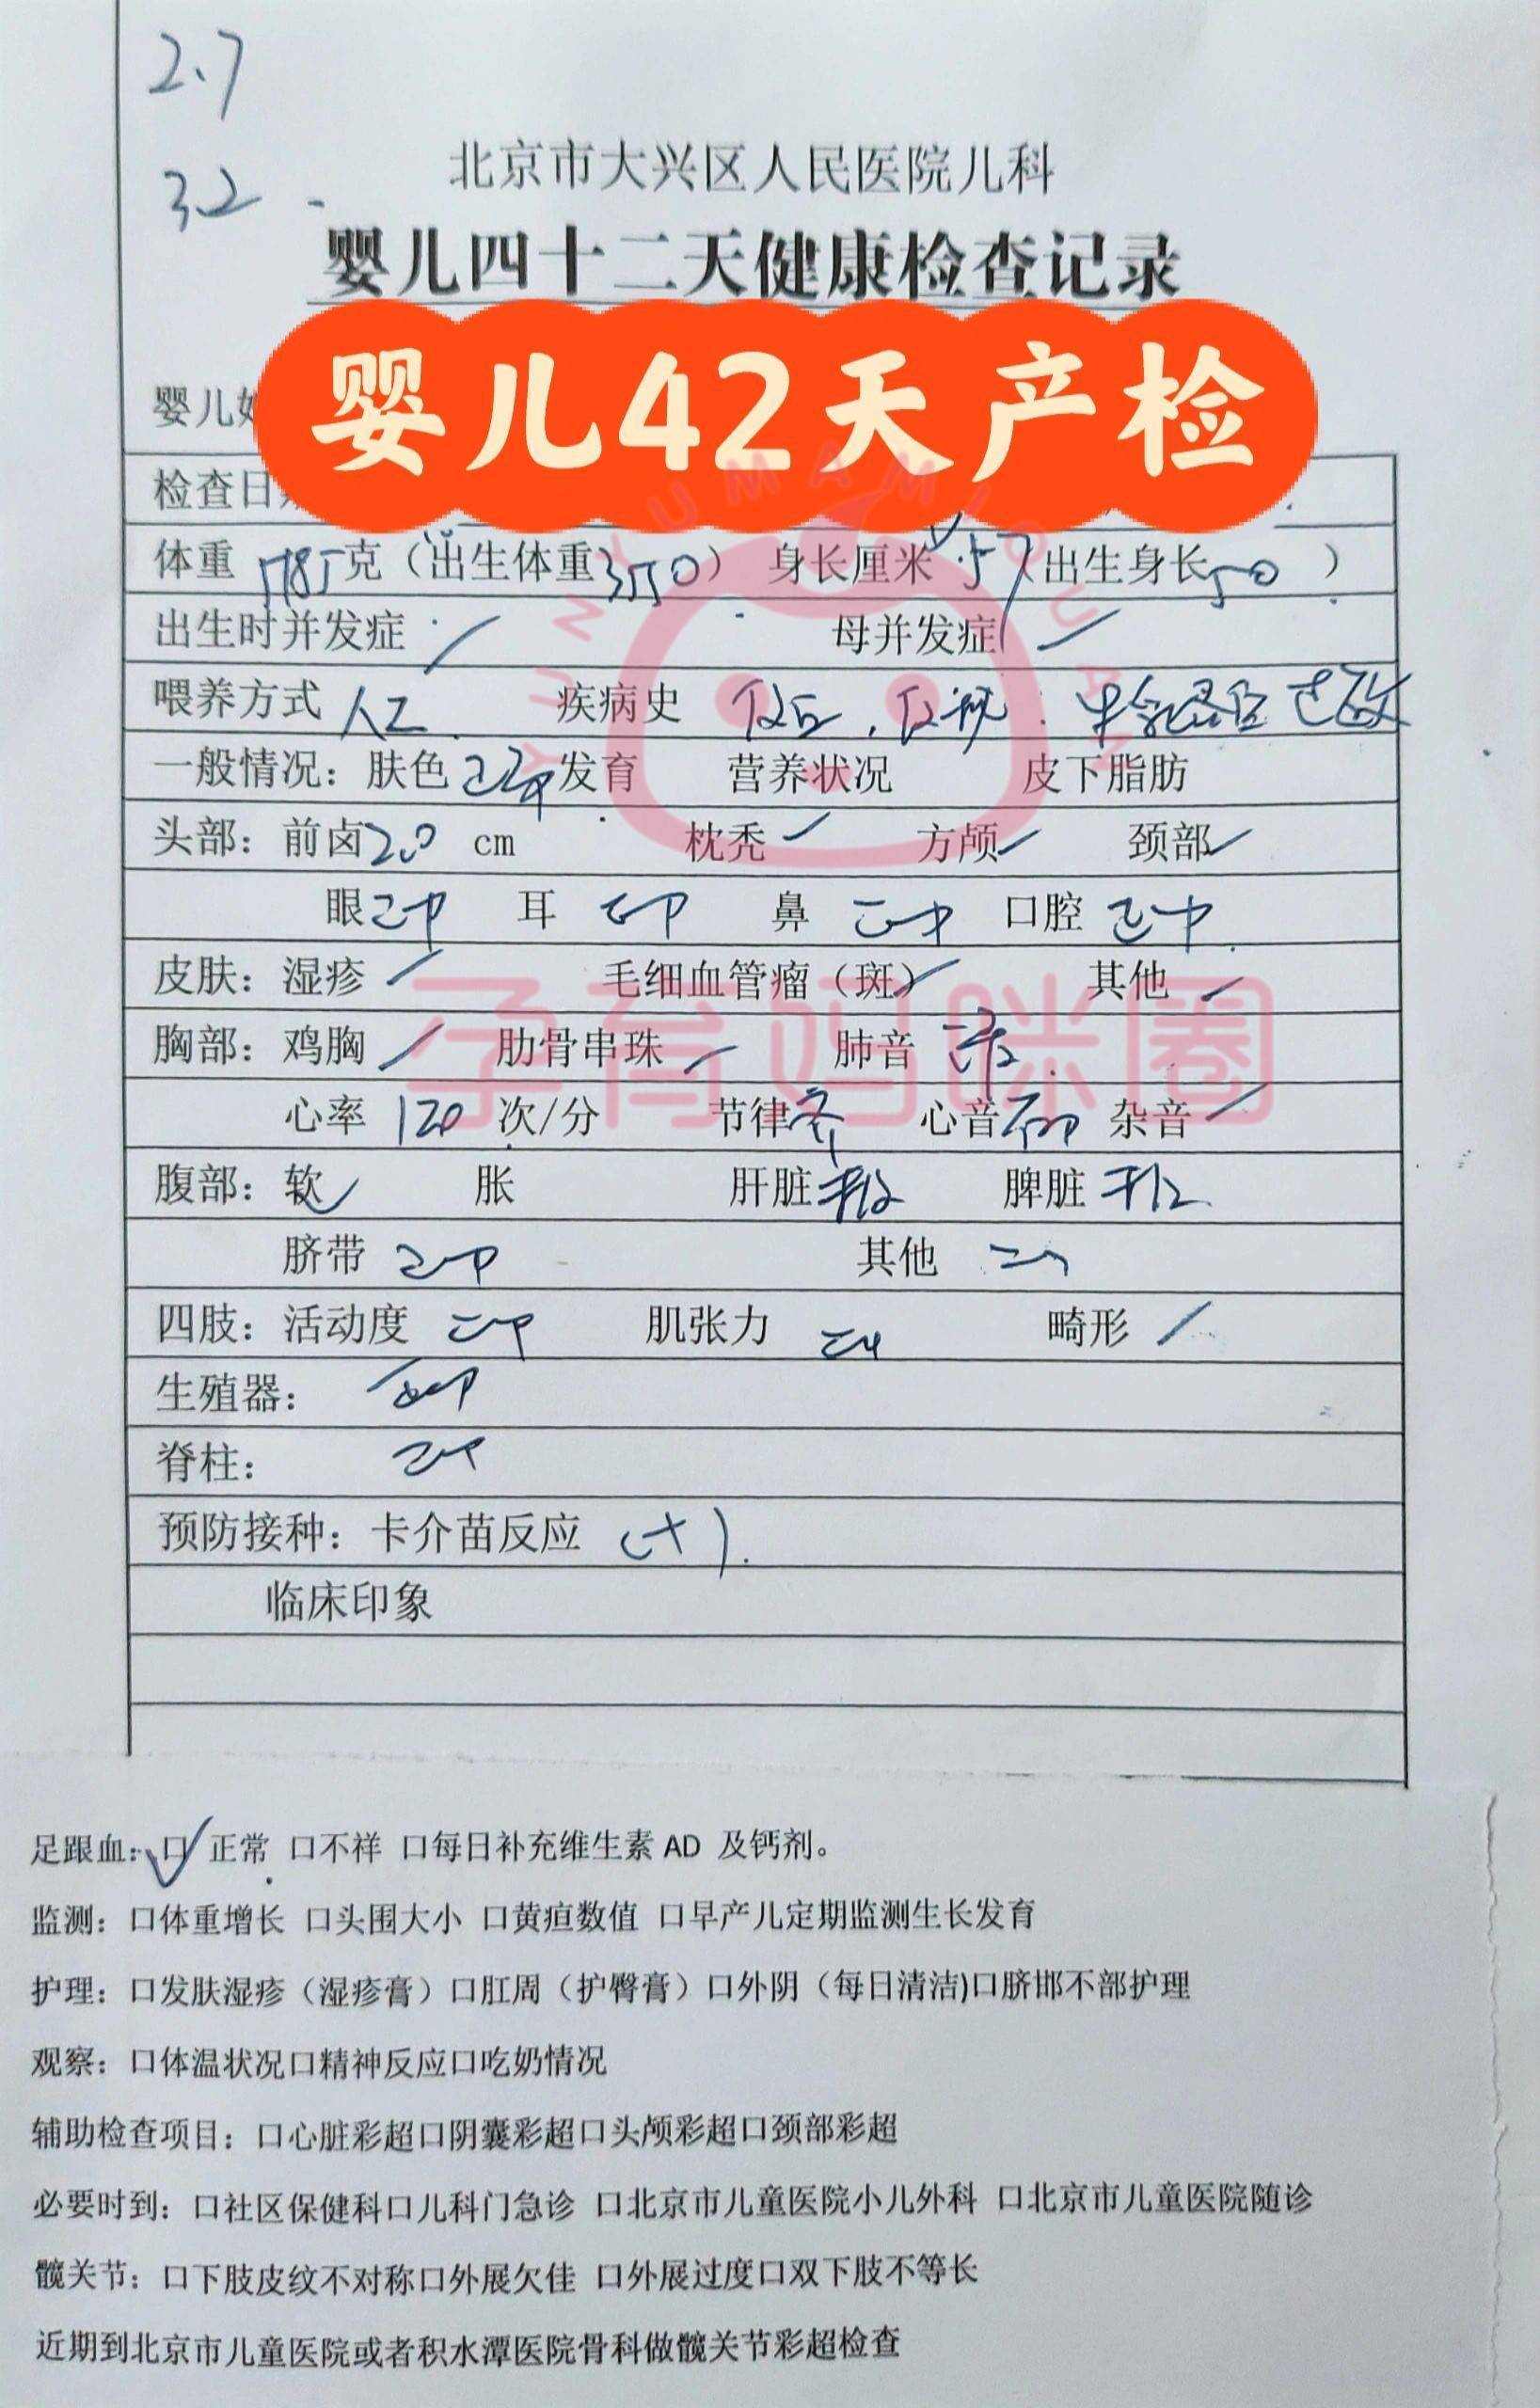 2.7
32
北京市大兴区人民医院儿科
婴儿四十二天健康检查记录
婴儿42天产检
婴儿
检查日
体重 5785克（出生体重3550） 身长厘米 57（出生身长50）
出生时并发症 / 母并发症 /
喂养方式 人工 疾病史
一般情况：肤色 发育 营养状况 皮下脂肪
头部：前卤2.0 cm 枕秃 / 方颅 / 颈部 /
眼 耳 鼻 口腔
皮肤：湿疹 / 毛细血管瘤（斑）/ 其他 /
胸部：鸡胸 / 肋骨串珠 / 肺音
心率 120 次/分 节律齐 心音 杂音 /
腹部：软✓ 胀 肝脏 脾脏
脐带 其他
四肢：活动度 肌张力 畸形 /
生殖器：
脊柱：
预防接种：卡介苗反应 (+).
临床印象
足跟血：☑正常 口不祥 口每日补充维生素 AD 及钙剂。
监测：口体重增长 口头围大小 口黄疸数值 口早产儿定期监测生长发育
护理：口发肤湿疹（湿疹膏）口肛周（护臀膏）口外阴（每日清洁)口脐邯不部护理
观察：口体温状况口精神反应口吃奶情况
辅助检查项目：口心脏彩超口阴囊彩超口头颅彩超口颈部彩超
必要时到：口社区保健科口儿科门急诊 口北京市儿童医院小儿外科 口北京市儿童医院随诊
髋关节：口下肢皮纹不对称口外展欠佳 口外展过度口双下肢不等长
近期到北京市儿童医院或者积水潭医院骨科做髋关节彩超检查
YUNYUMAMIQUAN
孕育妈咪圈